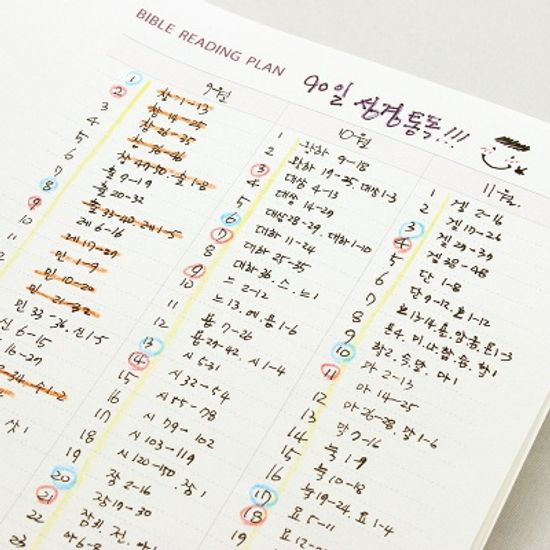 BIBLE READING PLAN
90일 성경통독!!!
9월
1 창 1-13
2 창 14-25
3 창 26-35
4 창 36-46
5 창 47-50 · 출 1-8
6 출 9-19
7 출 20-32
8 출 33-40, 레 1-5
9 레 6-16
10 레 17-27
민 1-9
민 10-20
민 21-32
민 33-36 · 신 1-5
신 6-15
16-29
삿 1
10월
1 왕하 9-18
2 왕하 19-25, 대상 1-3
3 대상 4-13
4 대상 14-27
5 대상 28-29, 대하 1-10
6 대하 11-24
7 대하 25-35
8 대하 36 · 스 · 느 1
9 느 2-12
10 느 13 · 에 · 욥 1-6
11 욥 7-26
12 욥 27-42 · 시 1-4
13 시 5-31
14 시 32-54
15 시 55-78
16 시 79-102
17 시 103-119
18 시 120-150 · 잠 1
19 잠 2-16
20 잠 17-30
21
22
11월
1 겔 2-16
2 겔 17-26
3 겔 27-39
4 겔 38-48
5 단 1-8
6 단 9-12, 호 1-12
7
8
9 마 2-13
10 마 14-25
11 마 26-28, 막 1-6
12 막 7-16
13 눅 1-9
14 눅 10-18
15 눅 19-24, 요 1-4
16 요 5-11
17
18
19